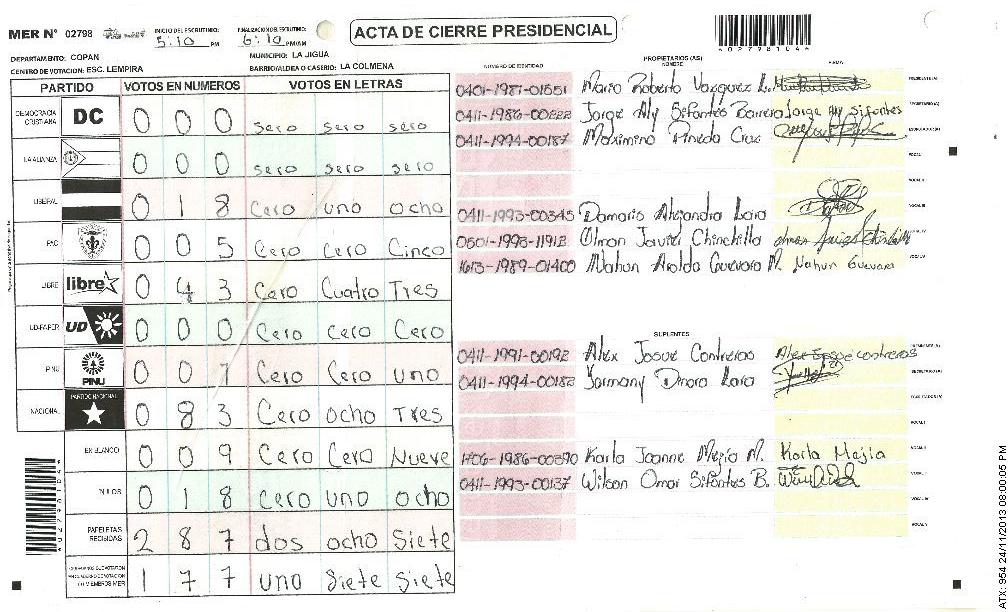 MER N° 02798 INICIO DEL ESCRUTINIO: 5:10 PM FINALIZACION DEL ESCRUTINIO: 6:10 PM/AM
ACTA DE CIERRE PRESIDENCIAL
*02798104*
DEPARTAMENTO: COPAN MUNICIPIO: LA JIGUA
CENTRO DE VOTACION: ESC. LEMPIRA BARRIO/ALDEA O CASERIO: LA COLMENA
PARTIDO VOTOS EN NUMEROS VOTOS EN LETRAS
DEMOCRACIA CRISTIANA DC 0 0 0 sero sero sero
LA ALIANZA 0 0 0 sero sero sero
LIBERAL 0 1 8 Cero uno ocho
PAC 0 0 5 Cero Cero Cinco
LIBRE libre 0 4 3 Cero Cuatro Tres
UD-FAPER UD 0 0 0 Cero Cero Cero
PINU PINU 0 0 1 Cero Cero uno
NACIONAL PARTIDO NACIONAL 0 8 3 Cero ocho Tres
EN BLANCO 0 0 9 Cero Cero Nueve
NULOS 0 1 8 Cero uno ocho
PAPELETAS RECIBIDAS 2 8 7 dos ocho Siete
1 7 7 uno Siete Siete
NUMERO DE IDENTIDAD PROPIETARIOS (AS) NOMBRE FIRMA
0401-1981-01551 Mario Roberto Vazquez L. PRESIDENTE(A)
0411-1986-00222 Jorge Aly Sifontes Barrera Jorge Aly Sifontes SECRETARIO(A)
0411-1994-00187 Maximino Pineda Cruz ESCRUTADOR(A)
VOCAL I
VOCAL II
0411-1993-00345 Damaris Alejandra Lara VOCAL III
0501-1993-11912 Olman Javier Chinchilla VOCAL IV
1613-1989-01400 Nahun Aroldo Guevara M. Nahun Guevara VOCAL V
SUPLENTES
0411-1991-00192 Alex Josue Contreras Alex Josue contreras PRESIDENTE(A)
0411-1994-00182 Yormany Dinora Lara SECRETARIO(A)
ESCRUTADOR(A)
VOCAL I
1406-1986-00290 Karla Joanne Mejia M. Karla Mejia VOCAL II
0411-1993-00137 Wilson Omar Sifontes B.
VOCAL IV
VOCAL V
ATX: 954 24/11/2013 08:00:05 PM